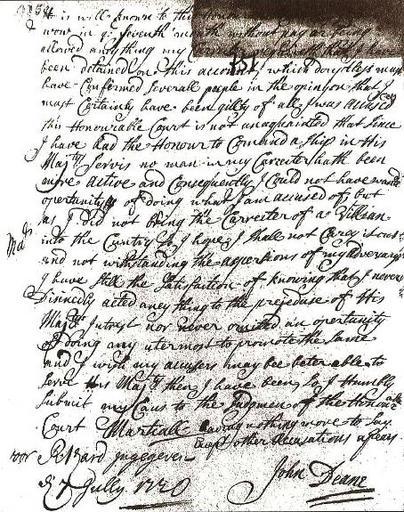 it is well known to this Honou
now in ye seventh month without pay or being
allowed anything my
been detained on this account, which doubtless may
have Confermed severall people in the opinion that I
must Certainly have been gilty of all I was accused
this Honourable Court is not unaquainted that since
I have had the Honour to Comand a ship in His
Majtys Servis no man in my Carecter hath been
more active and Consequently I Could not have wanted
opertunitys of doing what I am accused of, but
as I did not bring the Carrecter of a Villian
into the Cuntry so I hope I shall not Carey it out
and not withstanding the aspertions of my adversarys
I have still the Satisfaction of knowing that I never
Dinnedly acted aney thing to the prejeduse of His
Majtys Intrest nor never omited an opertunity
of doing my utermost to promote the same
and I wish my accusers may bee beter able to
serve His Majty then I have been, so I Humbly
submit my Caus to the Judgmen of the Honourable
Court Martiall having nothing move to say
except other accusations apear
voor
d 4 July 1720
John Deane